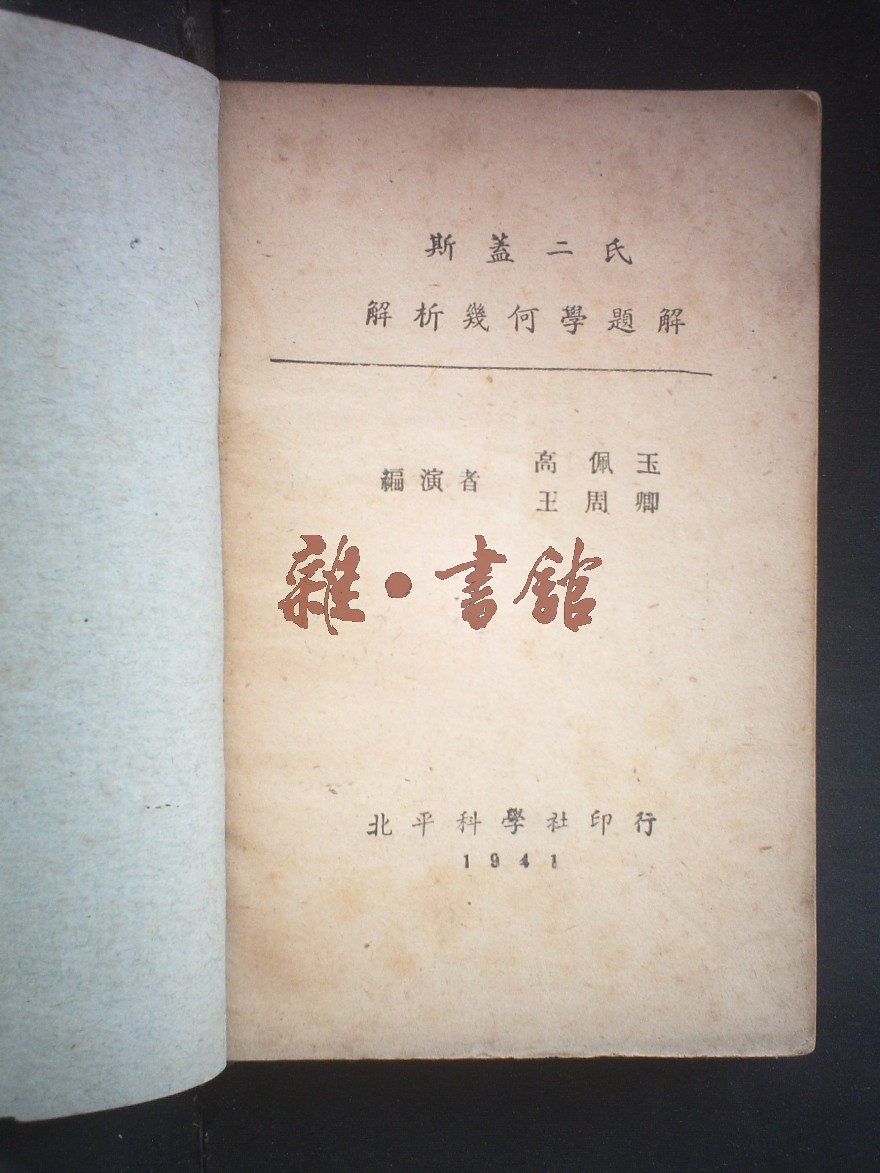 斯蓋二氏
解析幾何學題解
編演者
高佩玉
王周卿
雜·書館
北平科學社印行
1941